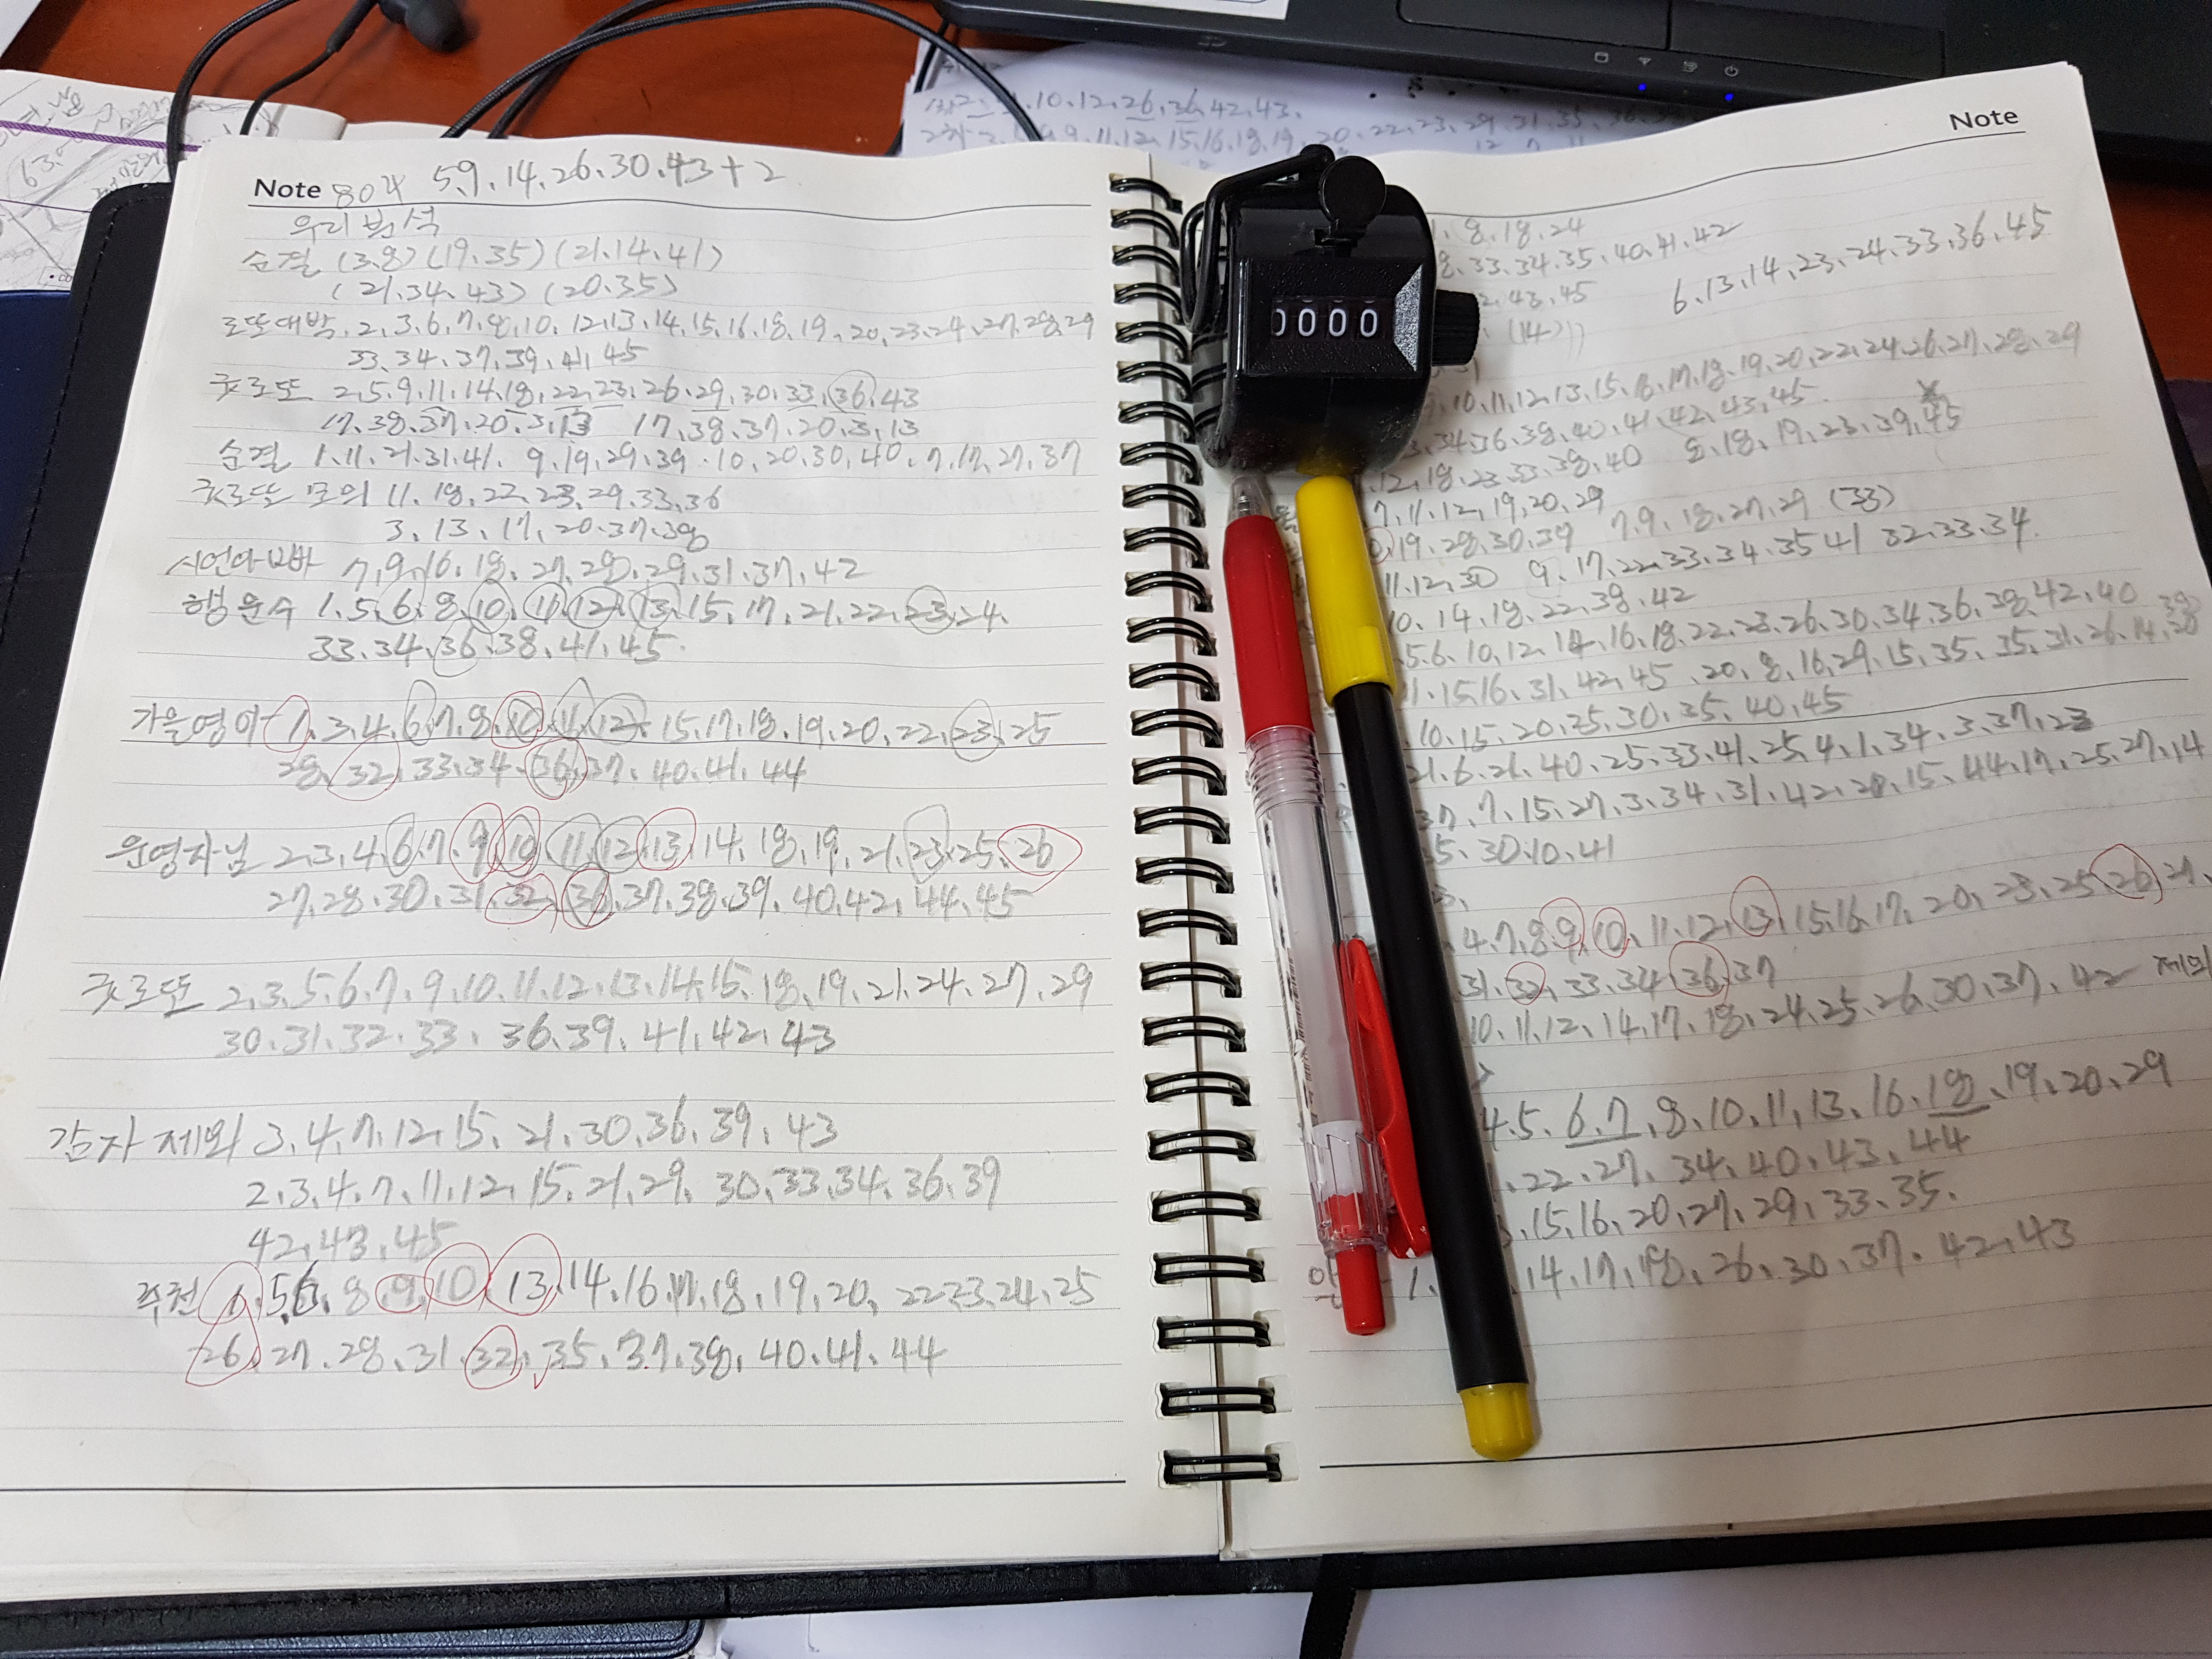 Note 804 5.9.14.26.30.43+2
우리분석
순결 (3.8) (19.35) (21.14.41)
(21.34.43) (20.35)
로또대박. 2.3.6.7.8.10.12.13.14.15.16.18.19.20.23.24.27.28.29
33.34.37.39.41.45
굿로또 2.5.9.11.14.18.22.23.26.29.30.33.36.43
17.38.37.20.3.13 17.38.37.20.3.13
순결 1.11.21.31.41. 9.19.29.39.10.20.30.40.7.17.27.37
굿로또 모의 11.18.22.23.29.33.36
3.13.17.20.37.38
시언아빠 7.9.16.18.27.28.29.31.37.42
행운수 1.5.6.8.10.11.12.13.15.17.21.22.23.24.
33.34.36.38.41.45.
가을영어 1.3.4.6.7.8.10.11.12.15.17.18.19.20.22.23.25
28.32.33.34.36.37.40.41.44
운영자님 2.3.4.6.7.9.10.11.12.13.14.18.19.21.23.25.26
27.28.30.31.32.36.37.38.39.40.42.44.45
굿로또 2.3.5.6.7.9.10.11.12.13.14.15.18.19.21.24.27.29
30.31.32.33.36.39.41.42.43
감자 제외 3.4.7.12.15.21.30.36.39.43
2.3.4.7.11.12.15.21.29.30.33.34.36.39
42.43.45
추천 1.5.6.8.9.10.13.14.16.17.18.19.20.22.23.24.25
26.27.28.31.32.35.37.38.40.41.44
Note
8.18.24
33.34.35.40.41.42
43.45
6.13.14.23.24.33.36.45
(14)
10.11.12.13.15.16.17.18.19.20.22.24.26.27.28.29
34.36.38.40.41.42.43.45.
12.18.23.33.38.40 8.18.19.23.39.45
7.11.12.19.20.29
19.28.30.39 7.9.18.27.29 (33)
11.12.30 9.17.22.33.34.35 41 32.33.34.
10.14.18.22.38.42
5.6.10.12.14.16.18.22.23.26.30.34.36.38.42.40
15.16.31.42.45.20.8.16.29.15.35.35.31.26.14.38
10.15.20.25.30.35.40.45
21.6.21.40.25.33.41.25.4.1.34.3.37.23
37.7.15.27.3.34.31.42.20.15.44.17.25.27.14
35.30.10.41
4.7.8.9.10.11.12.13.15.16.17.20.23.25.26.27.
31.32.33.34.36.37
10.11.12.14.17.18.24.25.26.30.37.42 제외
4.5.6.7.8.10.11.13.16.18.19.20.29
22.27.34.40.43.44
15.16.20.27.29.33.35.
14.17.18.26.30.37.42.43
0000
10.12.26.36.42.43.
9.11.12.15.16.18.19.20.22.23.29